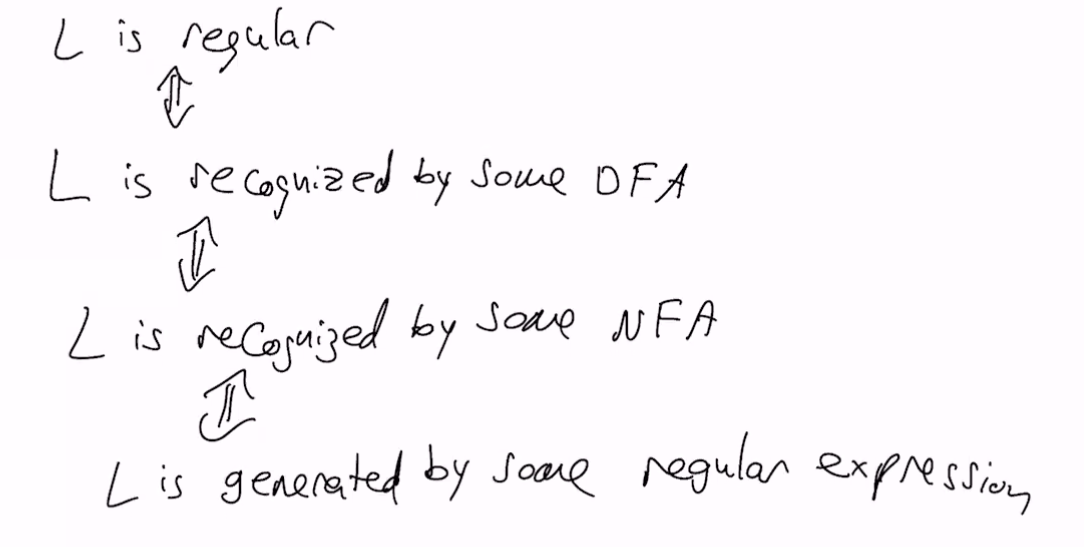 L is regular
⇕
L is recognized by some DFA
⇕
L is recognized by some NFA
⇕
L is generated by some regular expression